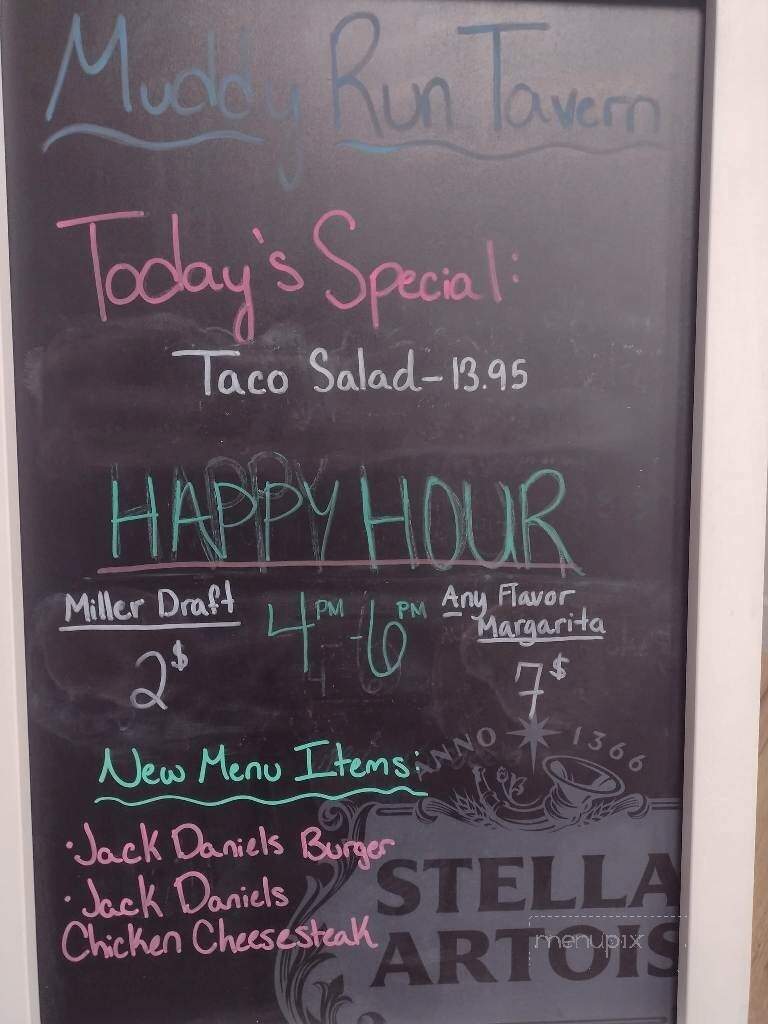 Muddy Run Tavern
Today's Special:
Taco Salad-13.95
HAPPY HOUR
Miller Draft
2$
4PM-6PM
Any Flavor
Margarita
7$
New Menu Items:
·Jack Daniels Burger
·Jack Daniels
Chicken Cheesesteak
ANNO 1366
STELLA
ARTOIS
menupix